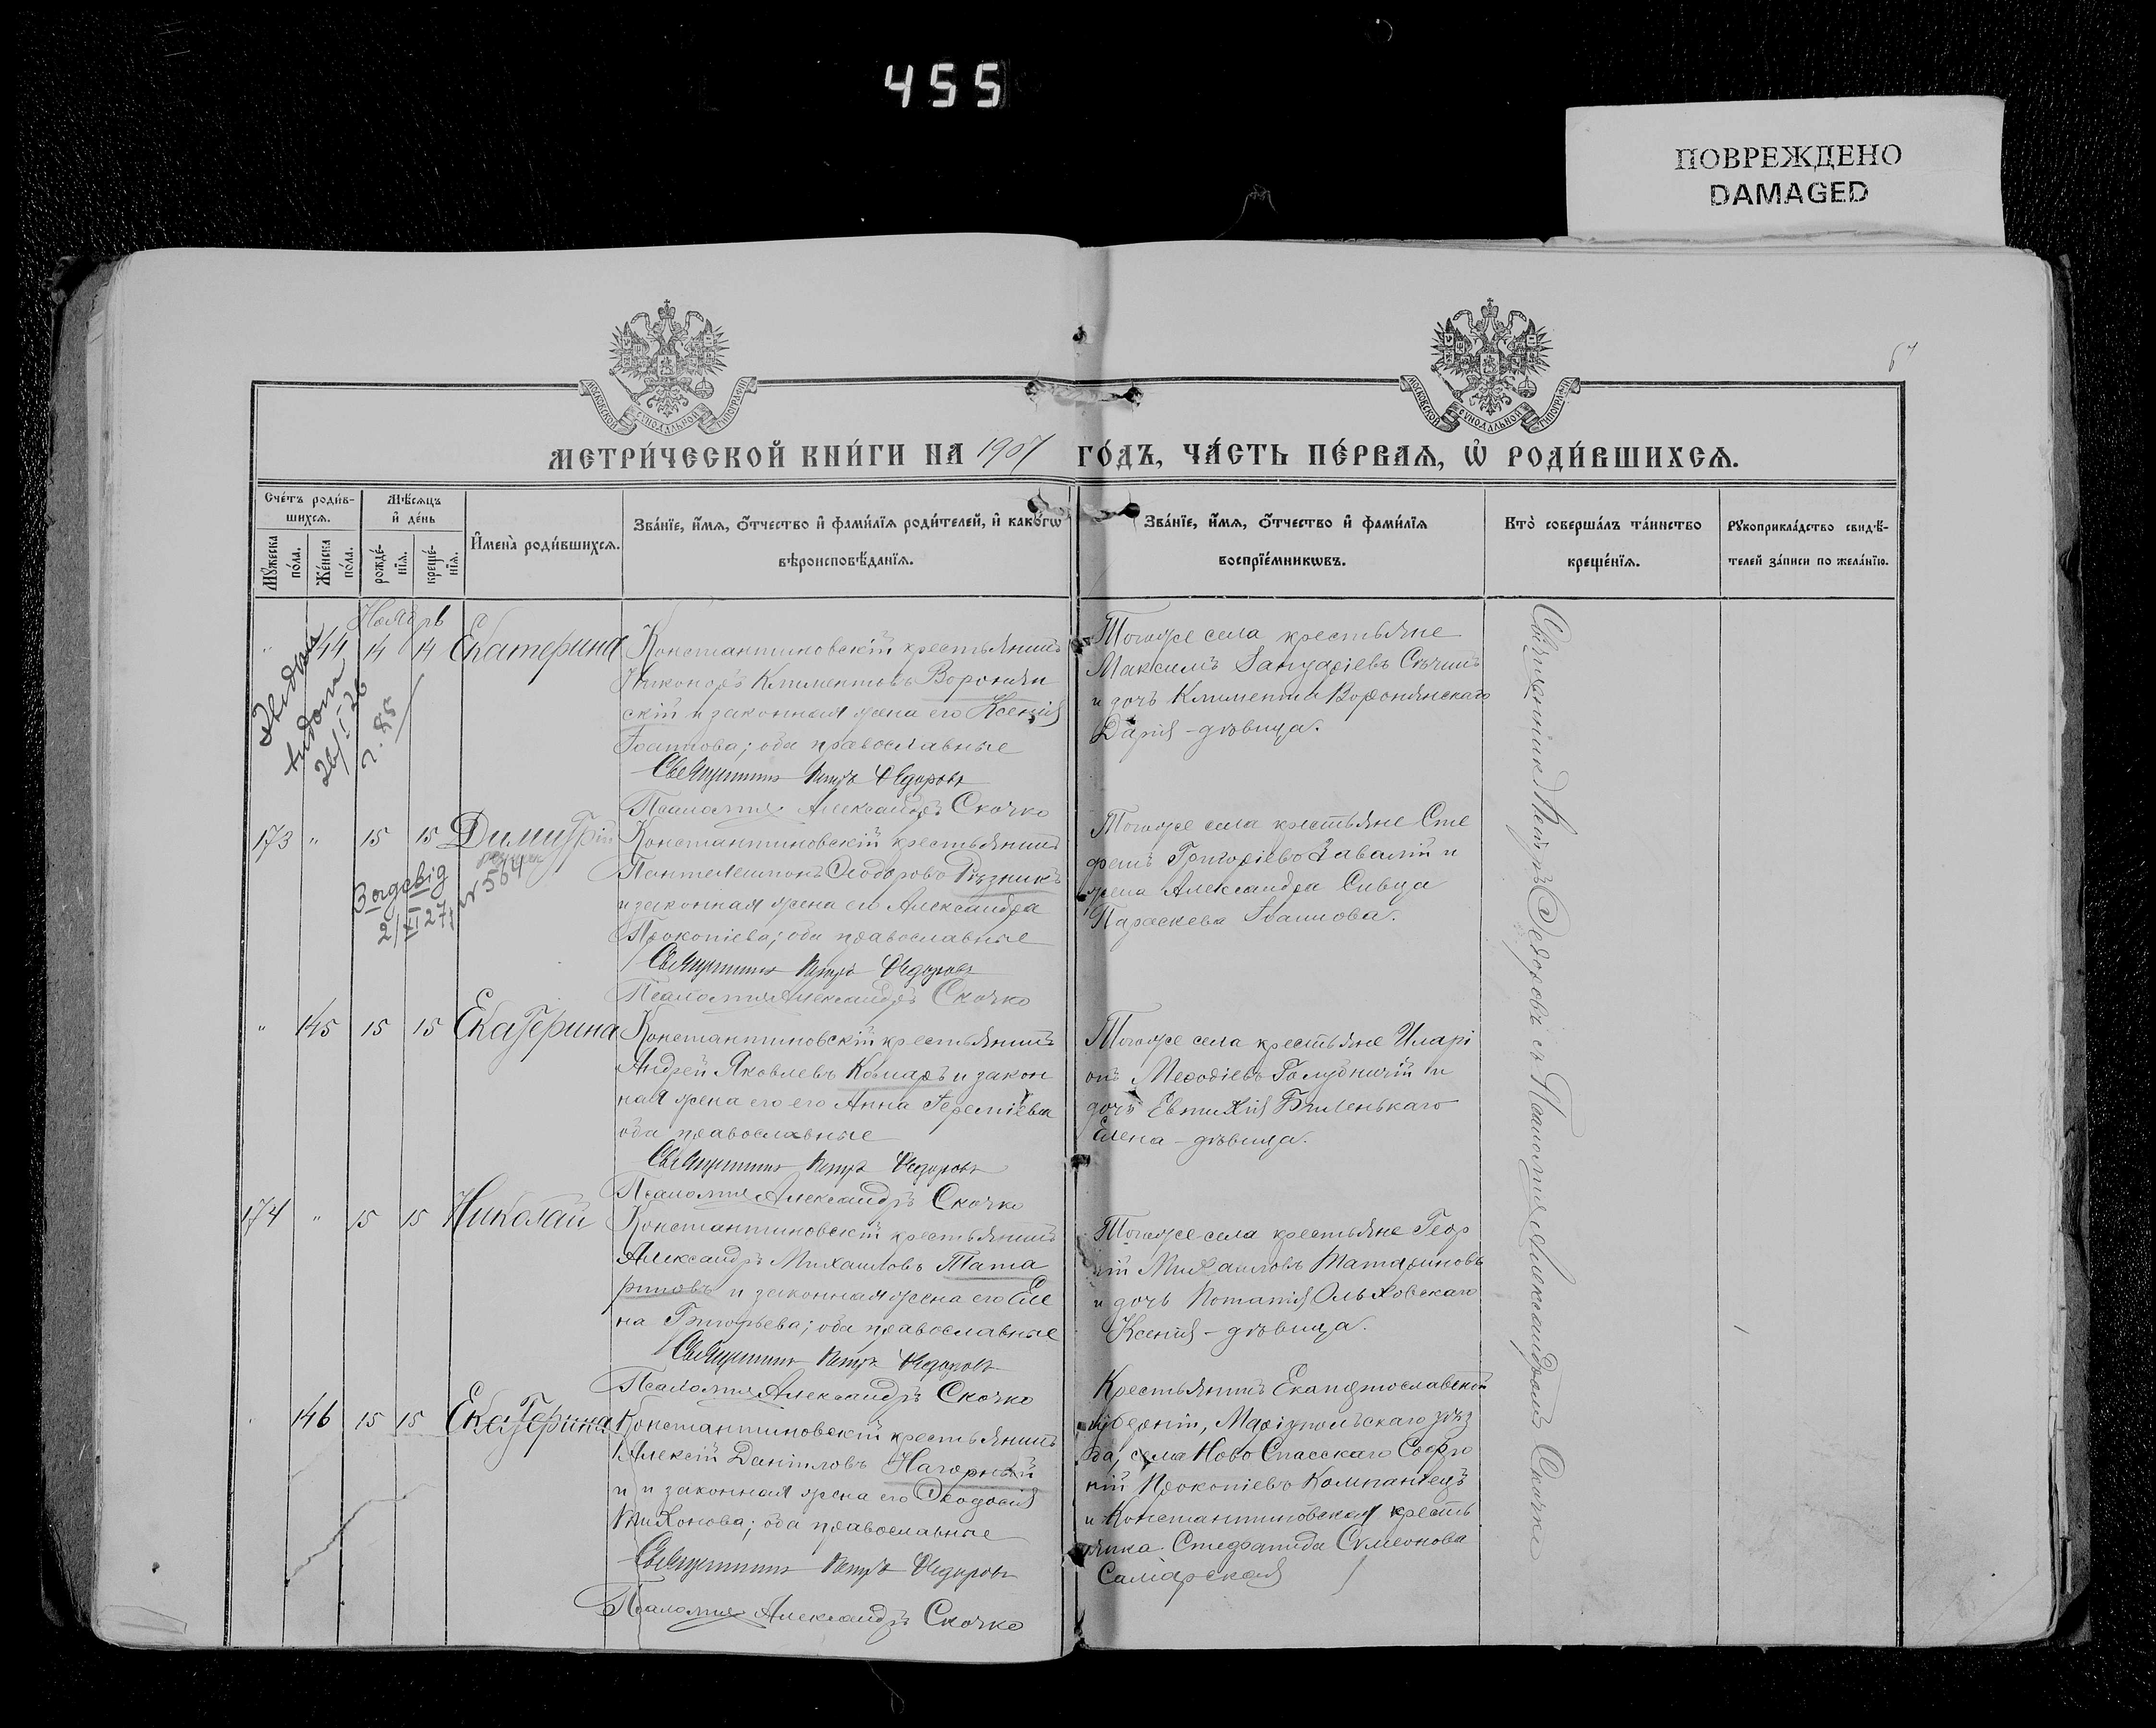 455
ПОВРЕЖДЕНО
DAMAGED
МОСКОВСКОЙ СѴНОДАЛЬНОЙ ТИПОГРАФІИ
МОСКОВСКОЙ СѴНОДАЛЬНОЙ ТИПОГРАФІИ
МЕТРИ́ЧЕСКОЙ КНИ́ГИ НА 1907
ГО́ДЪ, ЧА́СТЬ ПЕ́РВАѦ, Ѡ҆ РОДИ́ВШИХСѦ.
Сче́тъ роди́в-
шихсѧ.
Мѣ́сѧцъ
и҆ де́нь
Мꙋ́жеска
по́ла.
Же́нска
по́ла.
рожде́-
нїѧ.
креще́-
нїѧ.
И҆мена̀ роди́вшихсѧ.
Зва́нїе, и҆́мѧ, ѻ҆́тчество и҆ фами́лїѧ роди́телей, и҆ како́гѡ
вѣроисповѣ́данїѧ.
Зва́нїе, и҆́мѧ, ѻ҆́тчество и҆ фами́лїѧ
воспрїе́мникѡвъ.
Кто̀ соверша́лъ та́инство
креще́нїѧ.
Рꙋкоприкла́дство свидѣ́-
телей за́писи по жела́нїю.
Ноябрь
" 144 14 14 Екатерина
Константиновскій крестьянинъ
Никоноръ Климентовъ Воронян
скій и законная жена его Ксенія
Іоаннова; оба православные
Священникъ Петръ Ѳедоровъ
Псаломщ. Александръ Скочко
26/I 26
Тогоже села крестьяне
Максимъ Іануаріевъ Сѣчинъ
и дочь Климентія Воронянскаго
Дарія - дѣвица.
173 " 15 15 Димитрій
2/XI 27
№ 564
Константиновскій крестьянинъ
Пантелеимонъ Ѳеодоровъ Рѣзникъ
и законная жена его Александра
Прокопіева; оба православные
Священникъ Петръ Ѳедоровъ
Псаломщ. Александръ Скочко
Тогоже села крестьяне Сте
фанъ Григоріевъ Завалій и
жена Александра Сивца
Параскева Іоаннова.
" 145 15 15 Екатерина
Константиновскій крестьянинъ
Андрей Яковлевъ Комаръ и закон
ная жена его его Анна Іереміева
оба православные
Священникъ Петръ Ѳедоровъ
Псаломщ. Александръ Скочко
Тогоже села крестьяне Иларі
онъ Меѳодіевъ Голубничій и
дочь Евтихія Биленькаго
Елена - дѣвица.
174 " 15 15 Николай
Константиновскій крестьянинъ
Александръ Михаиловъ Тата
риновъ и законная жена его Еле
на Григорьева; оба православные
Священникъ Петръ Ѳедоровъ
Псаломщ. Александръ Скочко
Тогоже села крестьяне Геор
гій Михаиловъ Татариновъ
и дочь Потапія Ольховскаго
Ксенія - дѣвица.
146 15 15 Екатерина
Константиновскій крестьянинъ
Алексій Даніиловъ Нагорный
и и законная жена его Ѳеодосія
Тихонова; оба православные
Священникъ Петръ Ѳедоровъ
Псаломщ. Александръ Скочко
Крестьянинъ Екатеринославской
губерніи, Маріупольскаго уѣз
да, села Ново Спасскаго Софро
ній Прокопіевъ Компанїецъ
и Константиновская кресть
янка Стефанида Симеонова
Самарская
Священникъ Петръ Ѳедоровъ съ Псаломщ. Александромъ Скочко